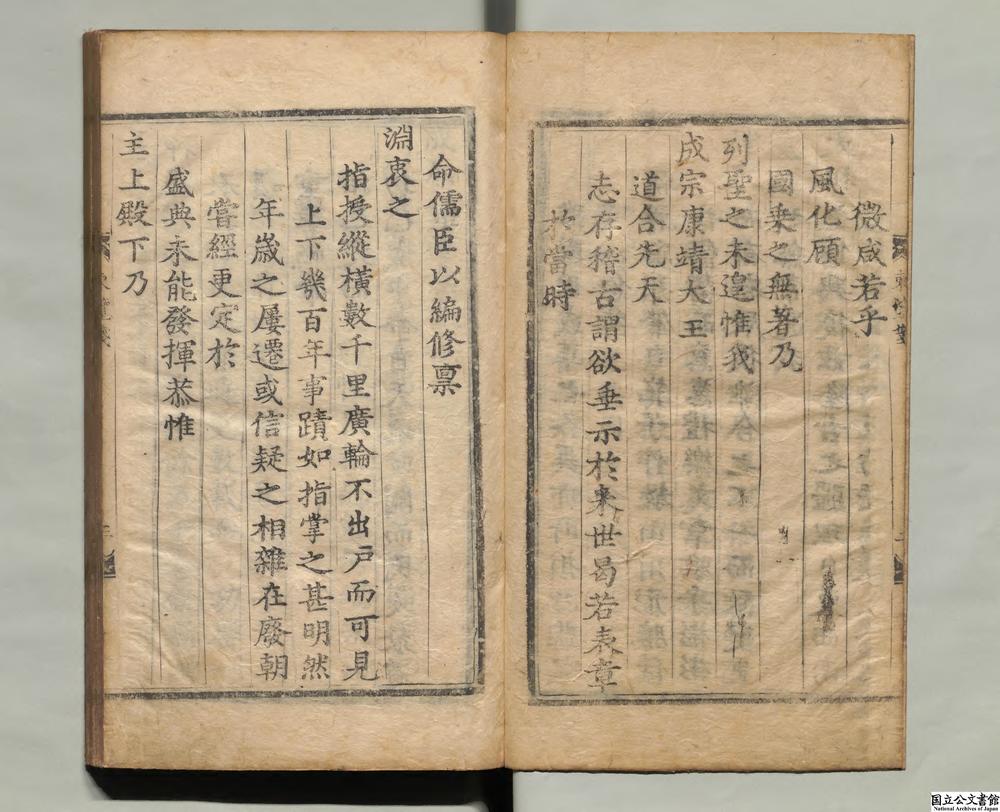 微咸若乎
風化顧
國乗之無著乃
列聖之未遑惟我
成宗康靖大王
道合先天
志存稽古謂欲垂示於来世曷若表章
於當時
命儒臣以編修禀
淵衷之
指授縱横數千里廣輪不出戶而可見
上下幾百年事蹟如指掌之甚明然
年歳之屢遷或信疑之相雜在廢朝
嘗經更定於
盛典未能發揮恭惟
主上殿下乃
国立公文書館
National Archives of Japan